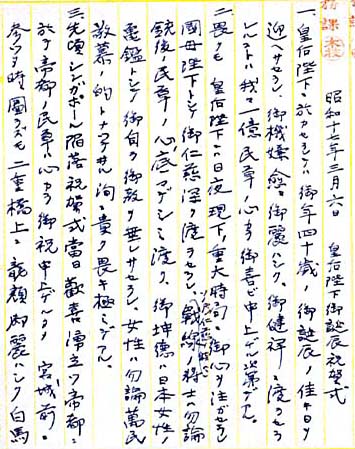 務課
昭和十七年三月六日 皇后陛下御誕辰祝賀式
一、皇后陛下ニ於カセラレテハ御年四十歳ノ御誕辰ノ佳キ日ヲ
迎ヘサセラレ、御機嫌愈々御麗ハシク、御健祥ニ渡ラセラ
レルコトハ我々一億民草ノ心カラ御喜ビ申上ゲル次第デアル。
二、畏クモ 皇后陛下ニハ日夜現下ノ重大時局ニ御心ヲ注ガセラレ
國母陛下トシテ御仁慈深ク渡ラセラレ、戦線ノ将士ハ勿論
銃後ノ民草ノ心ノ底マデシミ渡リ、御坤徳ハ日本女性ノ
亀鑑トシテ御自ラ御教ヲ垂レサセラレ、女性ハ勿論萬民
敬慕ノ的トナツテ 洵ニ貴ク畏キ極ミデアル。
三、先頃シンガポール陥落祝賀式當日歓喜溢ツ帝都ニ
於テ帝都ノ民草ハ心カラ御祝申上ゲルタメ 宮城前ニ
参リタ時 圖ラズモ二重橋上ニ 龍顔御麗ハシク 白馬